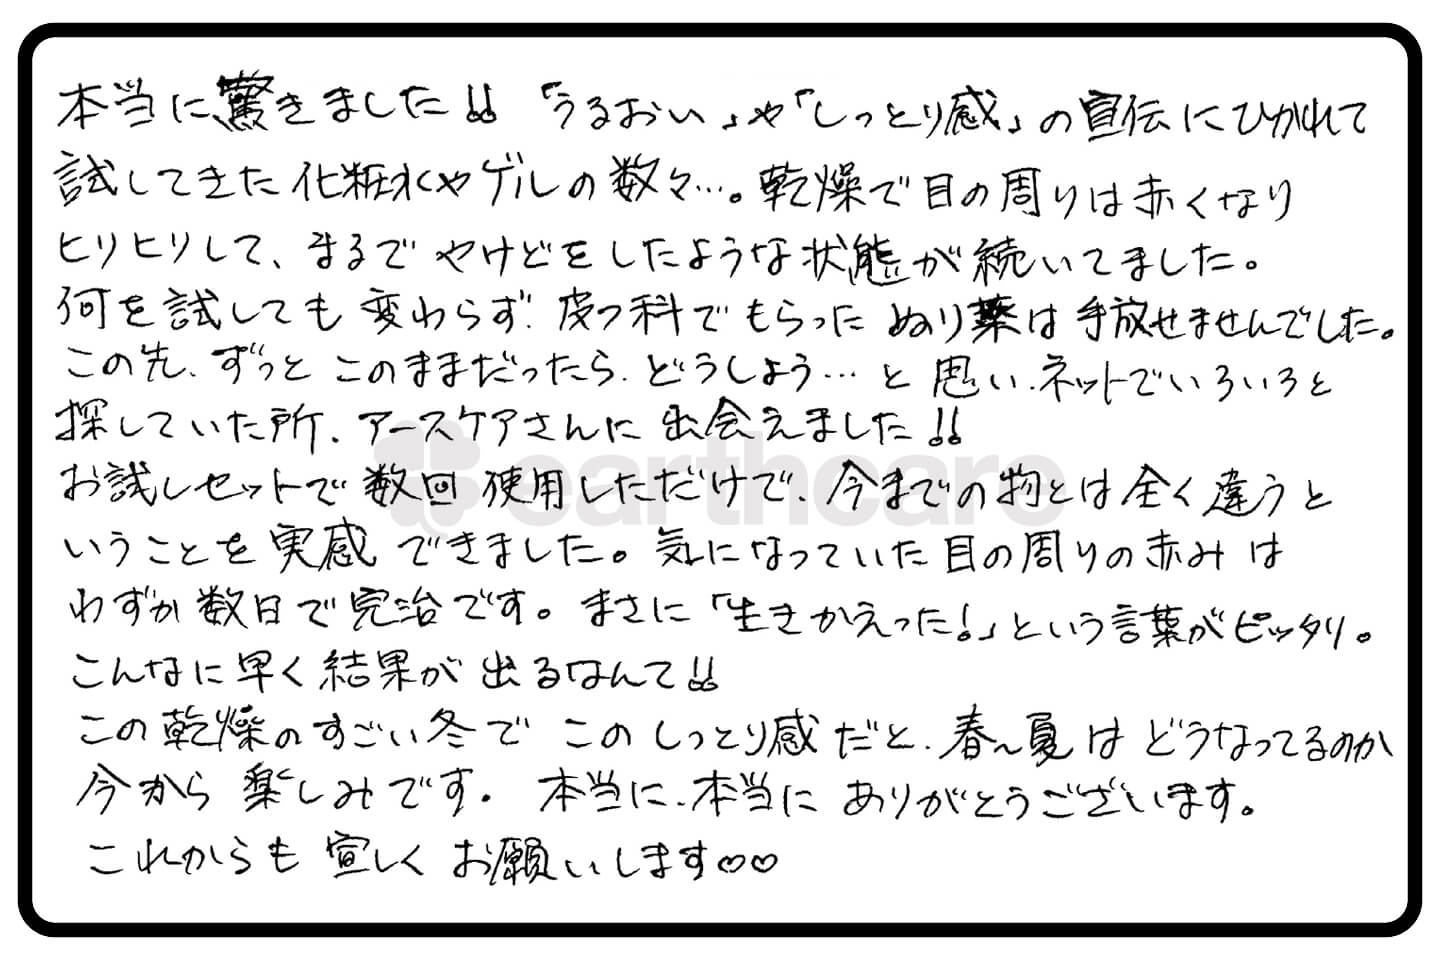 本当に驚きました!! 「うるおい」や「しっとり感」の宣伝にひかれて
試してきた化粧水やゲルの数々…。乾燥で目の周りは赤くなり
ヒリヒリして、まるでやけどをしたような状態が続いてました。
何を試しても変わらず、皮フ科でもらったぬり薬は手放せませんでした。
この先、ずっとこのままだったら、どうしよう…と思い、ネットでいろいろと
探していた所、アースケアさんに出会えました!!
お試しセットで数回使用しただけで、今までの物とは全く違うと
いうことを実感できました。気になっていた目の周りの赤みは
わずか数日で完治です。まさに「生きかえった!」という言葉がピッタリ。
こんなに早く結果が出るなんて!!
この乾燥のすごい冬でこのしっとり感だと、春~夏はどうなってるのか
今から楽しみです。本当に、本当にありがとうございます。
これからも宜しくお願いします♡♡
earthcare